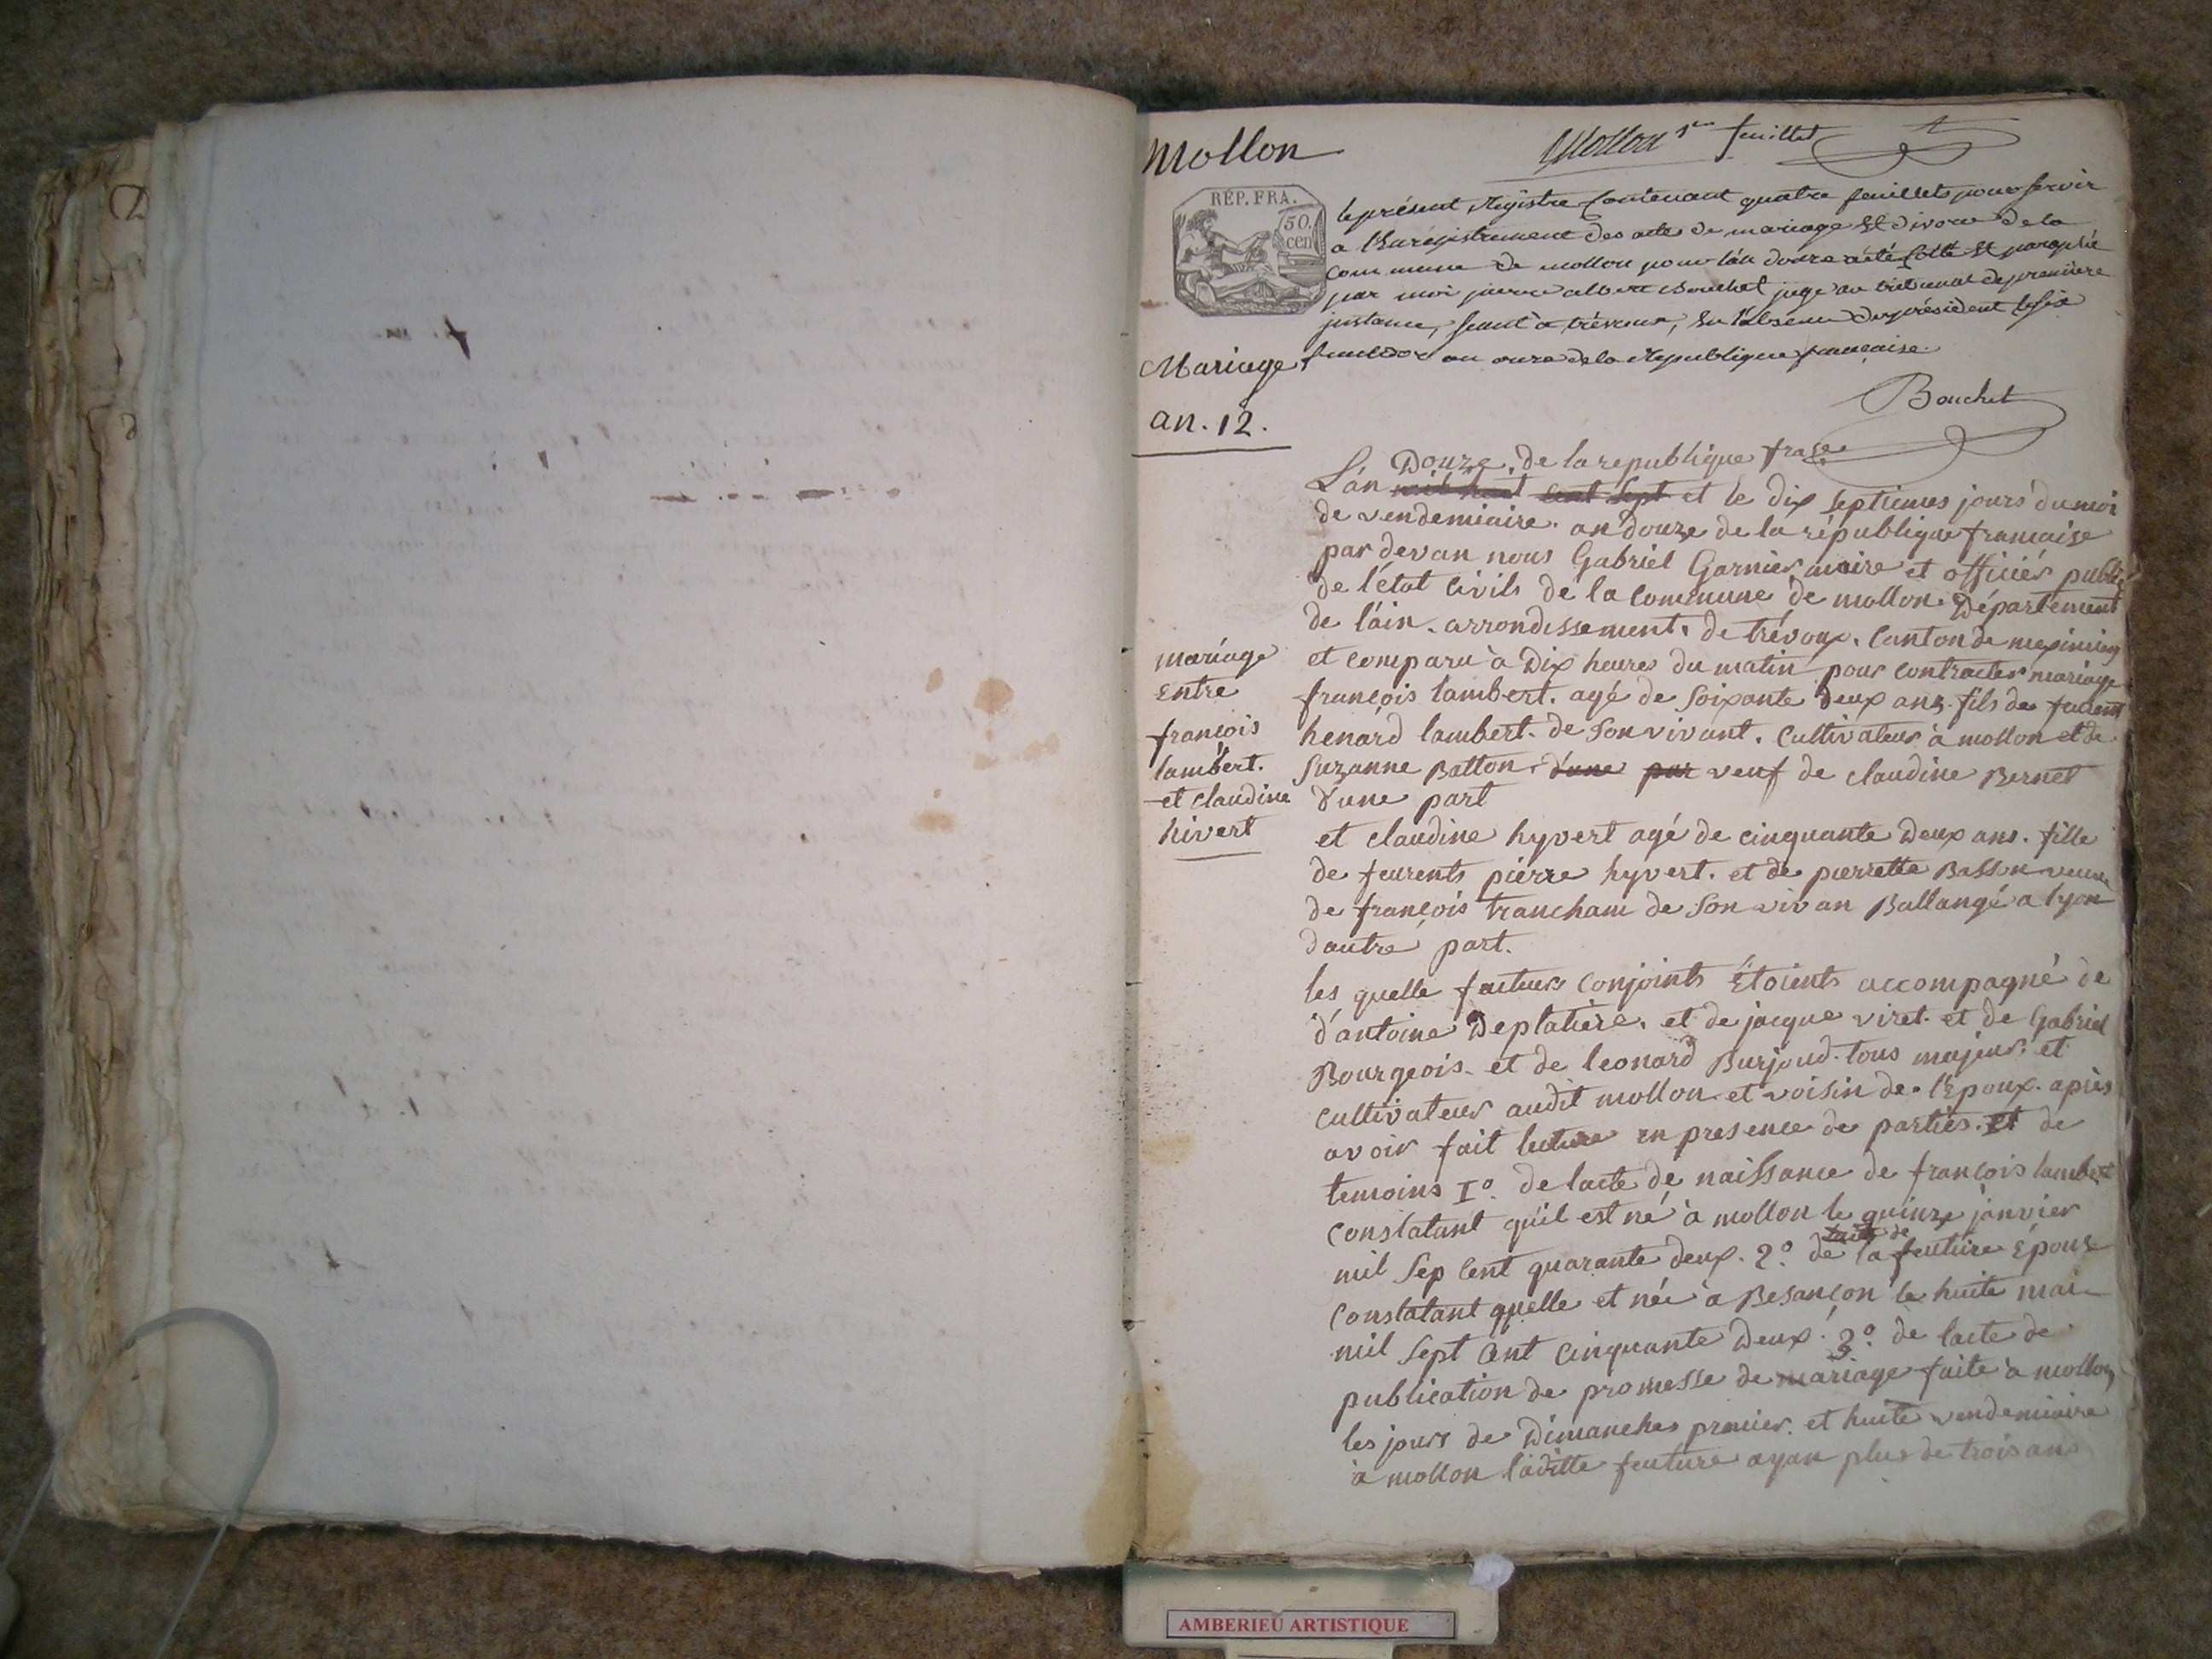 Mollon
Mollon 1er feuillet
RÉP. FRA.
50 cen
le présent Régistre Contenant quatre feuillets pour servir
a l'Enrégistrement des actes de mariage Et divorce de la
Commune de mollon pour l'an douze a été Cotté Et paraphé
par moi pierre albert Bouchet juge au tribunal de première
instance, séant à trévoux, En l'absence du président le six
fructidor an onze de la République française.
Bouchet
Mariage
an. 12.
Douze. de la republique frase
L'án mil huit cent sept et le dix septiemes jours du moi
de vendemiaire. an douze de la république francaise
par devan nous Gabriel Garnier maire et officiér public
de l'état civils de la commune de mollon. Département
de l'áin. arrondissement. de trévoux. Canton de meximieu
et comparu à Dix heures du matin pour contracter mariage
françois lambert. agé de soixante deux ans. fils de
henárd lambert. de Son vivant. Cultivateur à mollon et de
Suzanne Batton. d'une par veuf de claudine Bernet
d'une part
mariage
Entre
françois
lambert.
et claudine
hivert
et claudine hyvert agé de cinquante Deux ans. fille
de feurents pierre hyvert. et de pierrette Basson veuve
de françois trancham de Son vivan Ballangé a lyon
d'autre part.
les quelle futeurs conjoints Étoients accompagné de
d'antoine Deplatière. et de jacque viret. et de Gabriel
Bourgeois. et de leonard Burjoud. tous majeur. et
cultivateur audit mollon. et voisin de l'Epoux. après
avoir fait lecture en presence de parties. et de
temoins 1º. de lacte de naissance de françois lambert
constatant qu'il est né à mollon le quinze janvier
mil Sep Cent quarante deux. 2º. de lacte de la feuture Épouse
constatant quelle et née à Besançon le huite mai
mil Sept Cent Cinquante Deux. 3º. de lacte de
publication de promesse de mariage faite à mollon
les jours de Dimanches premier. et huite vendemiaire
à mollon laditte feuture ayan plus de trois ans
AMBERIEU ARTISTIQUE